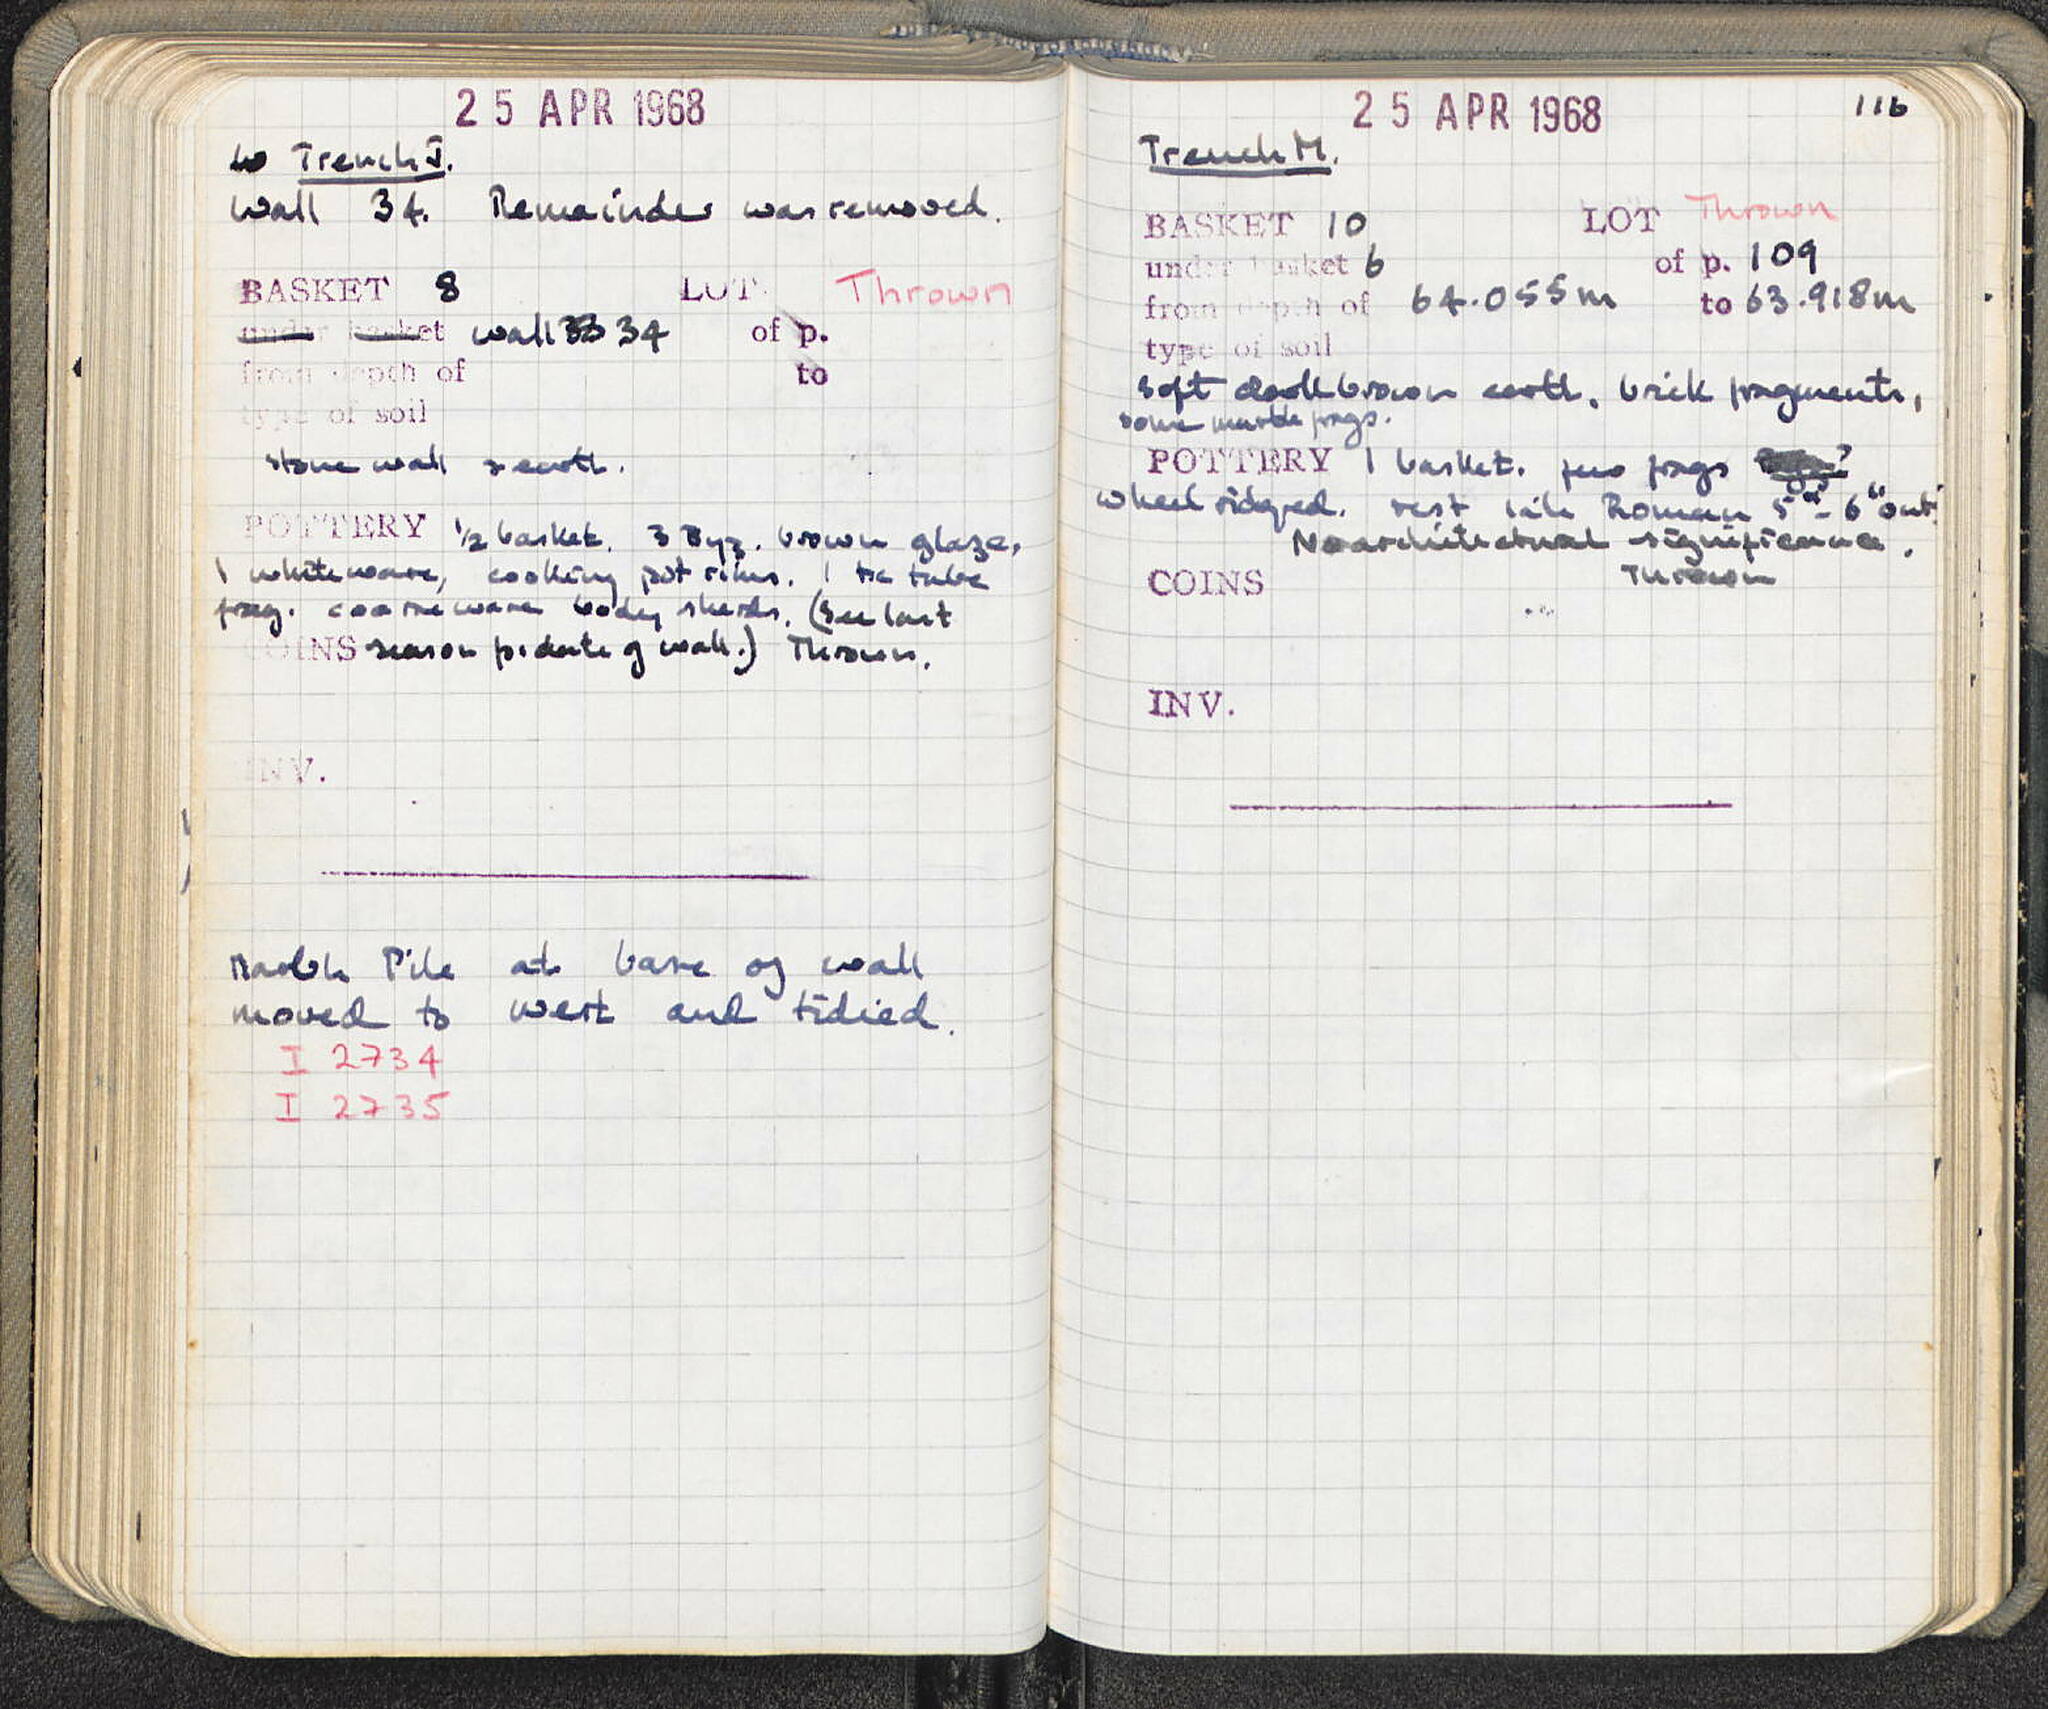 25 APR 1968
Trench J.
Wall 34. Remainder was removed.
BASKET 8 LOT Thrown
under basket wall 33 34 of p.
from depth of to
type of soil
stone wall & earth.
POTTERY 1/2 basket. 3 Byz. brown glaze,
1 white ware, cooking pot rims. 1 tube
frag. coarse ware body sherds. (See last
COINS season p. date of wall.) Thrown.
INV.
Marble Pile at base of wall
moved to west and tidied.
I 2734
I 2735
25 APR 1968 116
Trench M.
BASKET 10 LOT Thrown
under basket 6 of p. 109
from depth of 64.055m to 63.918m
type of soil
soft dark brown earth, brick fragments,
some marble frags.
POTTERY 1 basket. few frags
wheel ridged. rest late Roman 5th - 6th cent.
No architectural significance.
Thrown
COINS
INV.